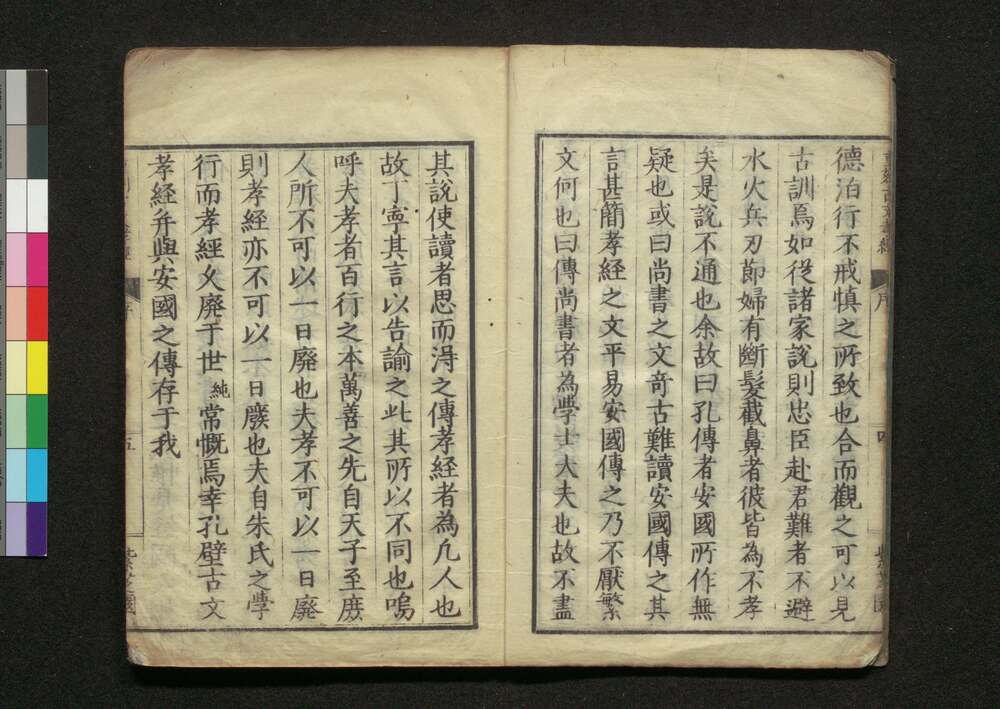 德泊行不戒慎之所致也合而觀之可以見
古訓焉如從諸家說則忠臣赴君難者不避
水火兵刃節婦有斷髮截鼻者彼皆為不孝
矣是說不通也余故曰孔傳者安國所作無
疑也或曰尚書之文奇古難讀安國傳之其
言甚簡孝經之文平易安國傳之乃不厭繁
文何也曰傳尚書者為學士大夫也故不盡
其說使讀者思而淂之傳孝經者為凡人也
故丁寧其言以告諭之此其所以不同也嗚
呼夫孝者百行之本萬善之先自天子至庶
人所不可以一日廢也夫孝不可以一日廢
則孝經亦不可以一日廢也夫自朱氏之學
行而孝經久廢于世純常慨焉幸孔壁古文
孝經弁與安國之傳存于我
五